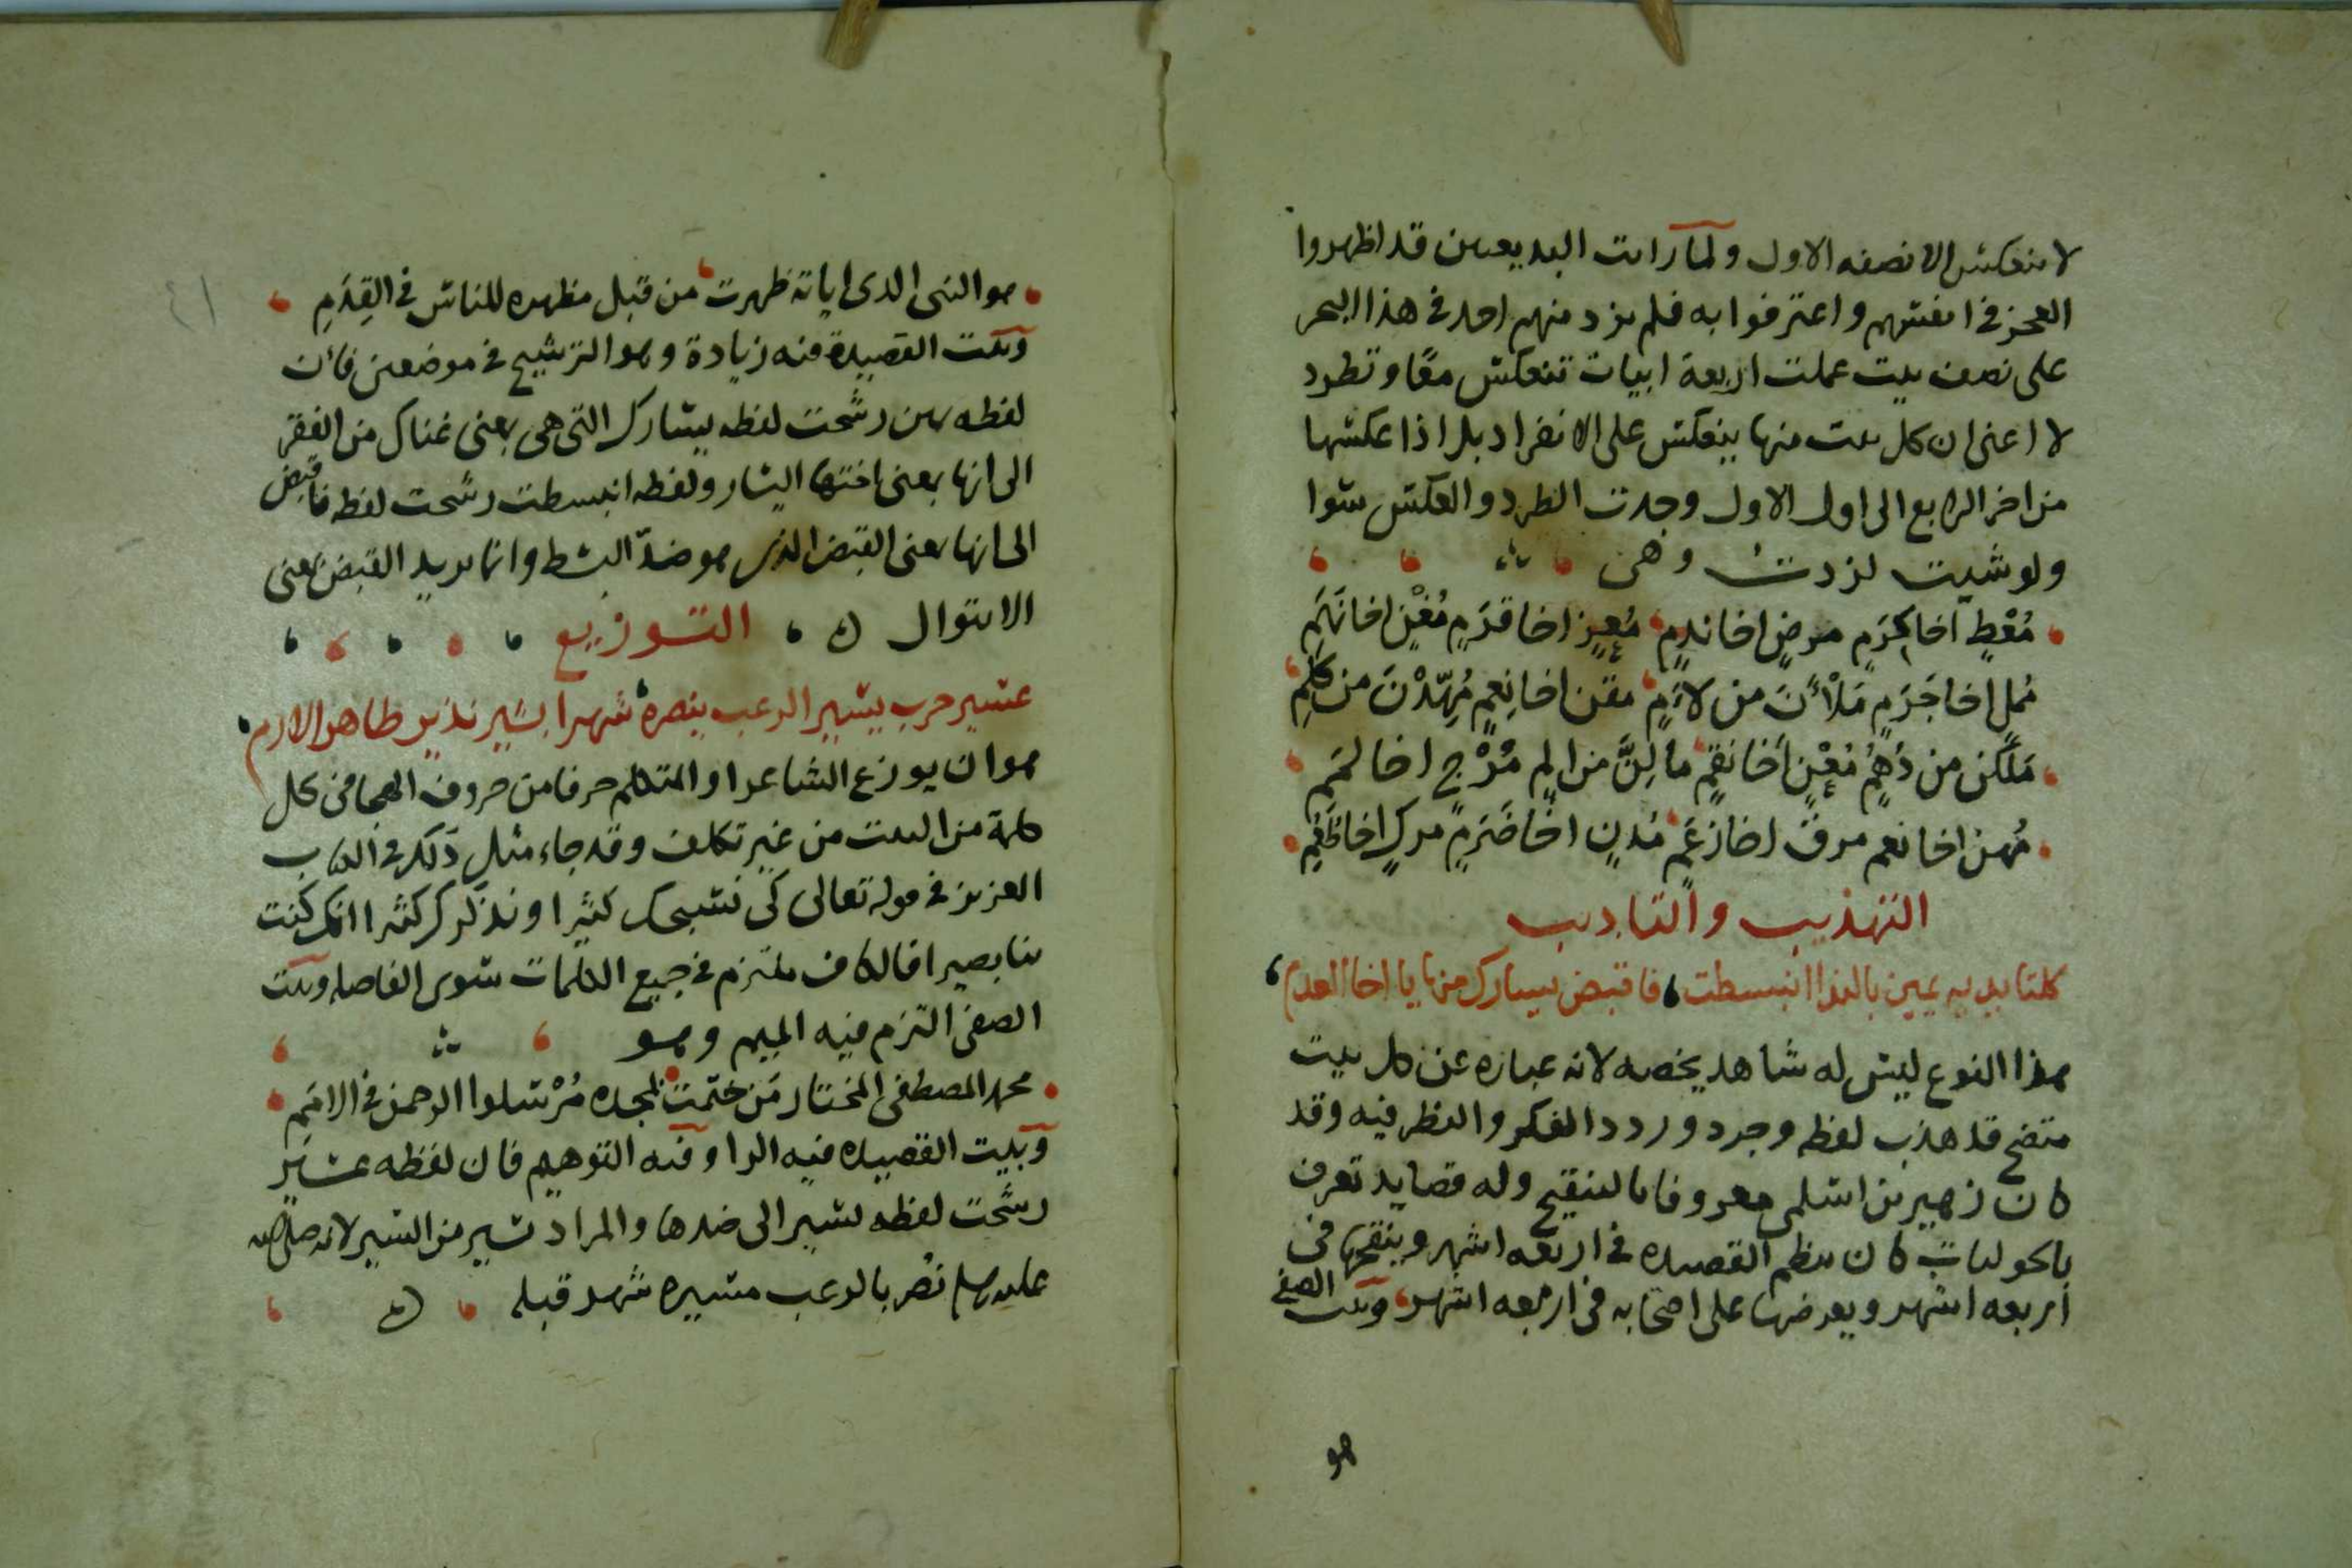 لا ينعكس الا نصفه الاول ولما رايت البديعيين قد اظهروا
العجز في انفسهم واعترفوا به فلم يزد منهم احد في هذا البحر
على نصف بيت عملت اربعة ابيات تنعكس معًا وتطرد
لا اعنى ان كل بيت منها ينعكس على الانفراد بل اذا عكستها
من اخر الرابع الى اول الاول وجدت الطرد والعكس سوا
ولو شيت لزدت وهى
مُعْطٍ اخا كرَمٍ مرضٍ اخا ندمٍ مُعِزٍ اخا قدَمٍ مُغْنٍ اخا نَهَمِ
مُملٍ اخا جَرَمٍ مَلْأَنَ من لاءَمٍ مقن اخا نِعمٍ مُهِدّنَ من كَلِمِ
مَلَكن من دُهمٍ مُعْنٍ أخا نقمٍ مالِنَّ من الم مُرْجٍ اخا لمَم
مُهن اخا نعم مرقٍ اخا زعَمٍ مُدنٍ اخا ضَرَمٍ مركٍ اخا ظَعَمِ
التهذيب والتاديب
كلتا يديه يمين بالندا انبسطت فاقبض يسارك منها يا اخا العدم
هذا النوع ليس له شاهد يخصه لانه عبارة عن كل بيت
متضح قد هذب لفظه وجرد وردد الفكر والنظر فيه وقد
كان زهير بن اسلمى معروفا بالتنقيح وله قصايد تعرف
بالحوليات كان ينظم القصيده في اربعه اشهر وينقحها فى
اربعه اشهر ويعرضها على اصحابه فى اربعه اشهر وبيت الصفي
هو
٤١
هو النبى الدى اياته ظهرت من قبل مظهره للناس في القِدَمِ
وبيت القصيدة فيه زيادة وهو الترشيح في موضعين فان
لفظه يمين رشحت لفظه يسارك التى هى بمعنى غناك من الفقر
الى انها بمعنى اختها اليسار ولفظه انبسطت رشحت لفظه فاقبض
الى انها بمعنى القبض الذى هو ضدّ البسط وانما يريد القبض بمعنى
الانتوال ه التوزيع
عسير حرب يسير الرعب ينصره شهرا بشير نذير طاهر الارم
هو ان يوزع الشاعر او المتكلم حرفا من حروف الهجا فى كل
كلمة من البيت من غير تكلف وقد جاء مثل ذلك في الكتاب
العزيز في قوله تعالى كى نسبحك كثيرا ونذكرك كثيرا انك كنت
بنا بصيرا فالكاف ملتزم في جميع الكلمات سوى الفاصله وبيت
الصفى التزم فيه الميم وهو
محمد المصطفى المختار مَن ختمت بمجده مُرْسلوا الرحمن في الامَمِ
وبيت القصيده فيه الرا وفيه التوهيم فان لفظه عسير
رشحت لفظه يسير الى ضدها والمراد تسير من السير لانه صلى الله
عليه وسلم نصر بالرعب مسيره شهر قبله ه